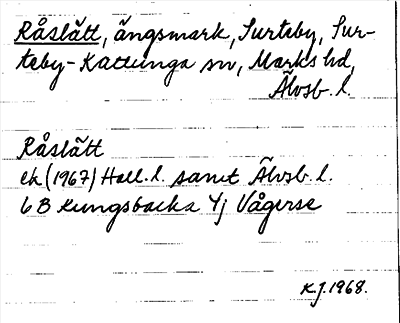 Råslätt, ängsmark, Surteby, Sur-
teby-Kattunga sn, Marks hd,
Älvsb. l.
Råslätt
ek (1967) Hall. l. samt Älvsb. l.
6 B Kungsbacka 4j Vågerse
K.J. 1968.